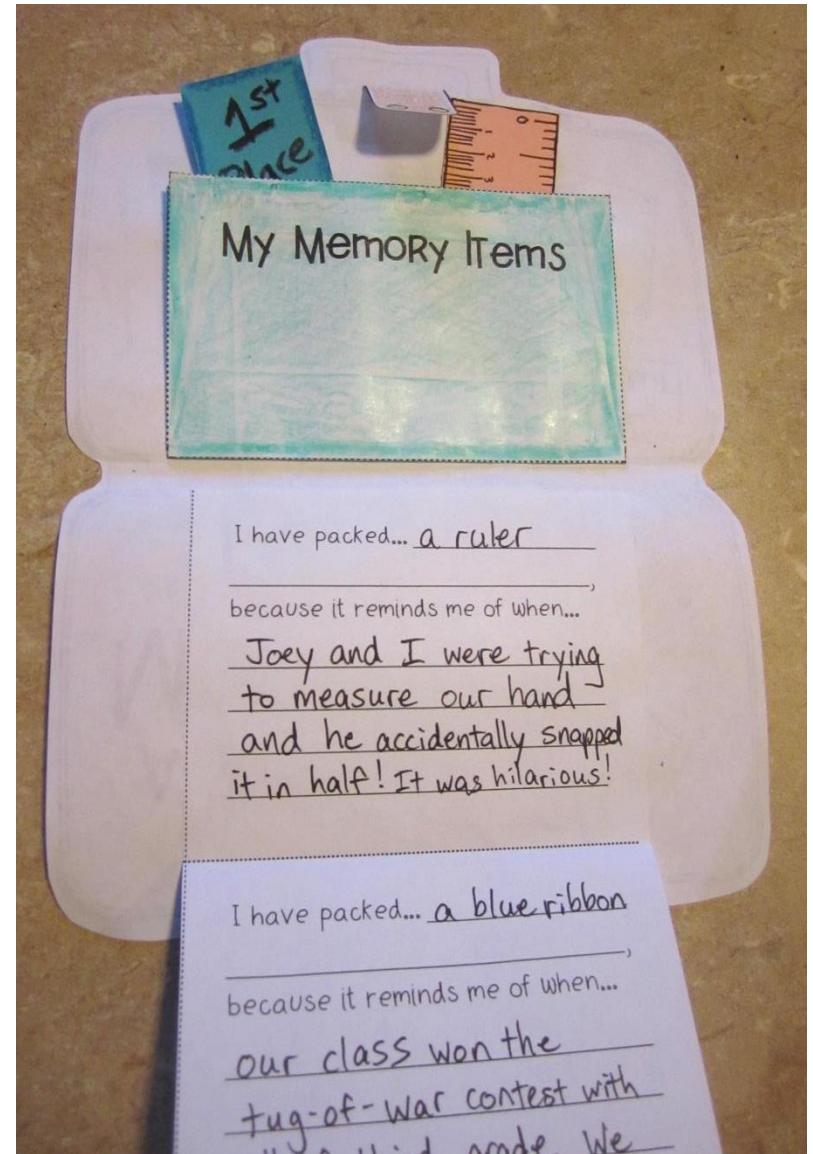 1st
Place
0
1
2
3
My Memory Items
I have packed... a ruler
,
because it reminds me of when...
Joey and I were trying
to measure our hand
and he accidentally snapped
it in half! It was hilarious!
I have packed... a blue ribbon
,
because it reminds me of when...
our class won the
tug-of-war contest with
third grade. We